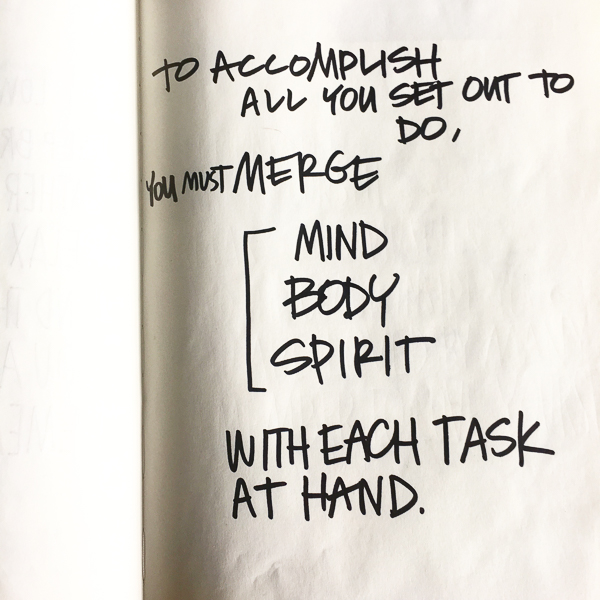 TO ACCOMPLISH
ALL YOU SET OUT TO
DO,
YOU MUST MERGE
MIND
BODY
SPIRIT
WITH EACH TASK
AT HAND.